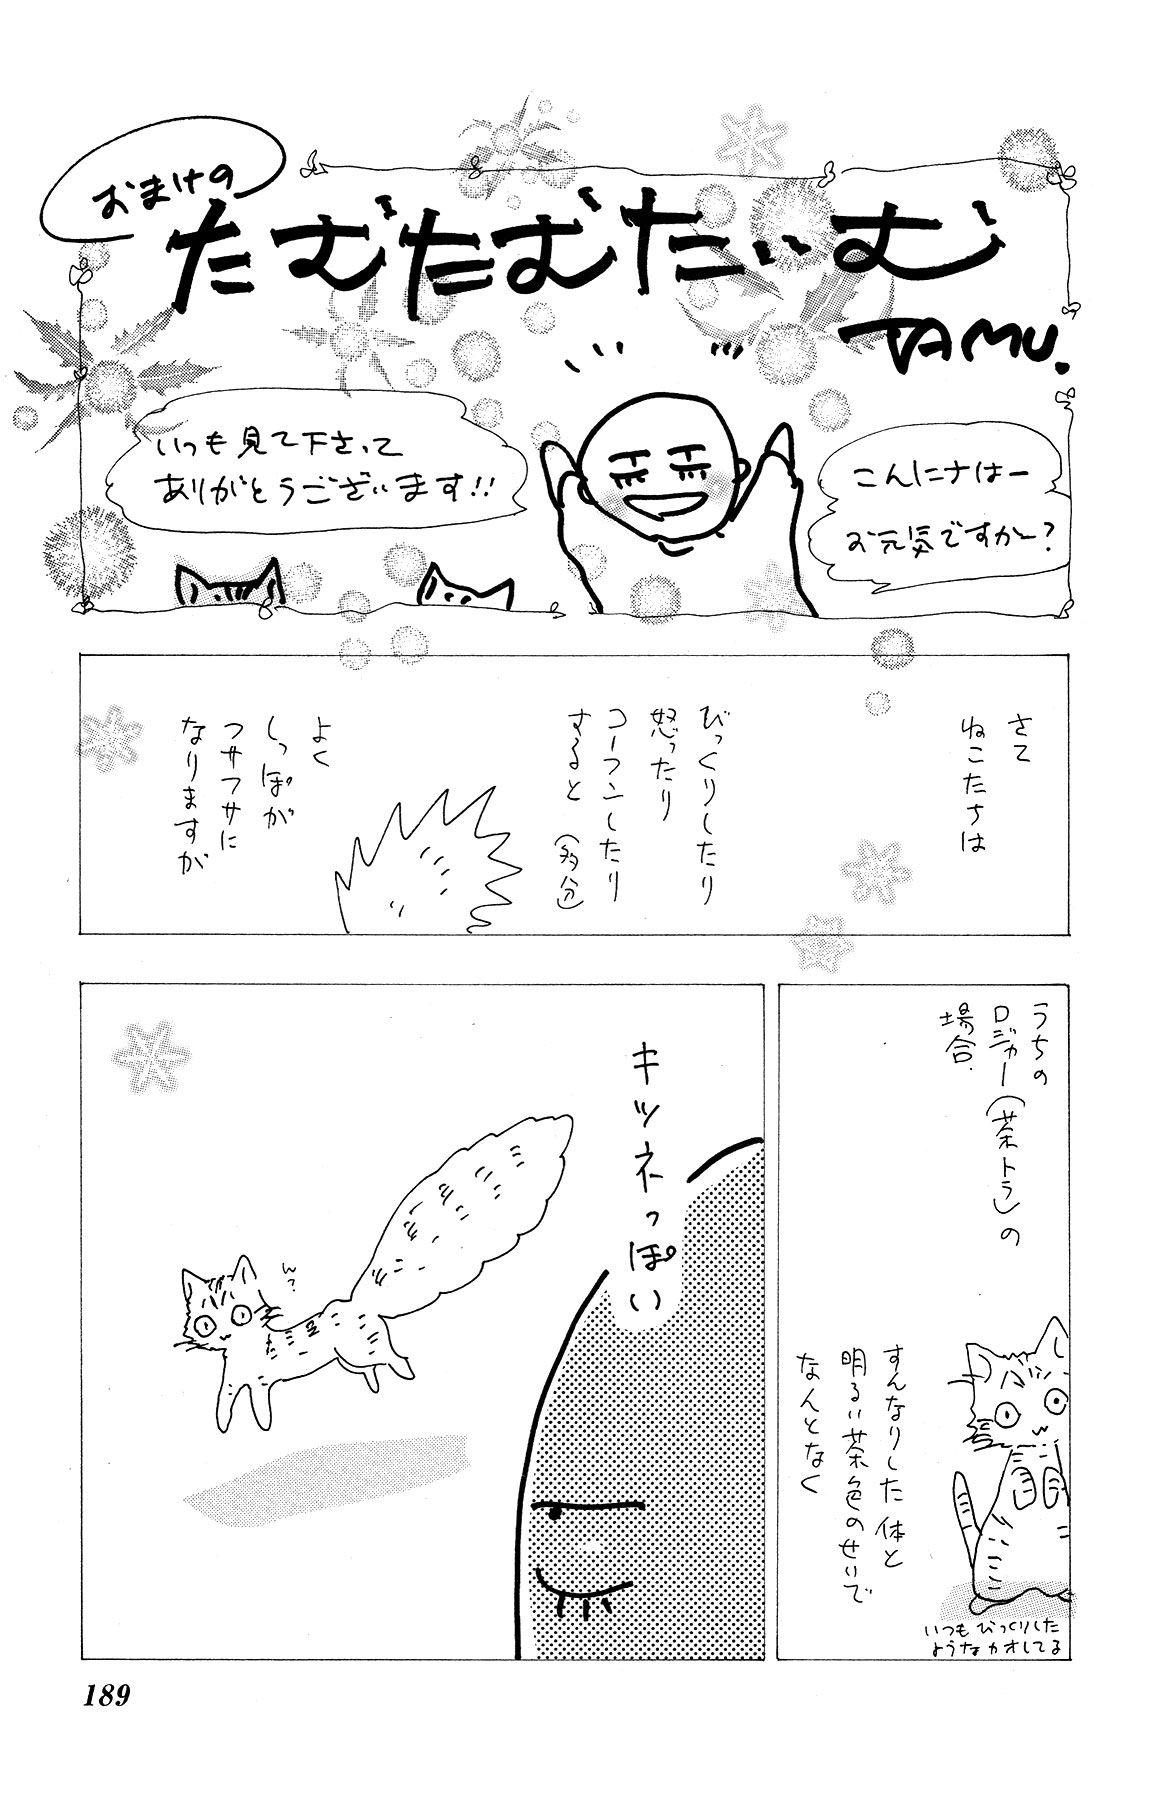 おまけの
たむたむたいむ
TAMU.
こんにナはー
お元気ですかー?
いつも見て下さって
ありがとうございます!!
さて
ねこたちは
びっくりしたり
怒ったり
コーフンしたり
すると(多分)
よく
しっぽが
フサフサに
なりますが
うちの
ロジャー(茶トラ)の
場合.
すんなりした体と
明るい茶色のせいで
なんとなく
いつもびっくりした
ようなカオしてる
キツネっぽい
んっ?
189